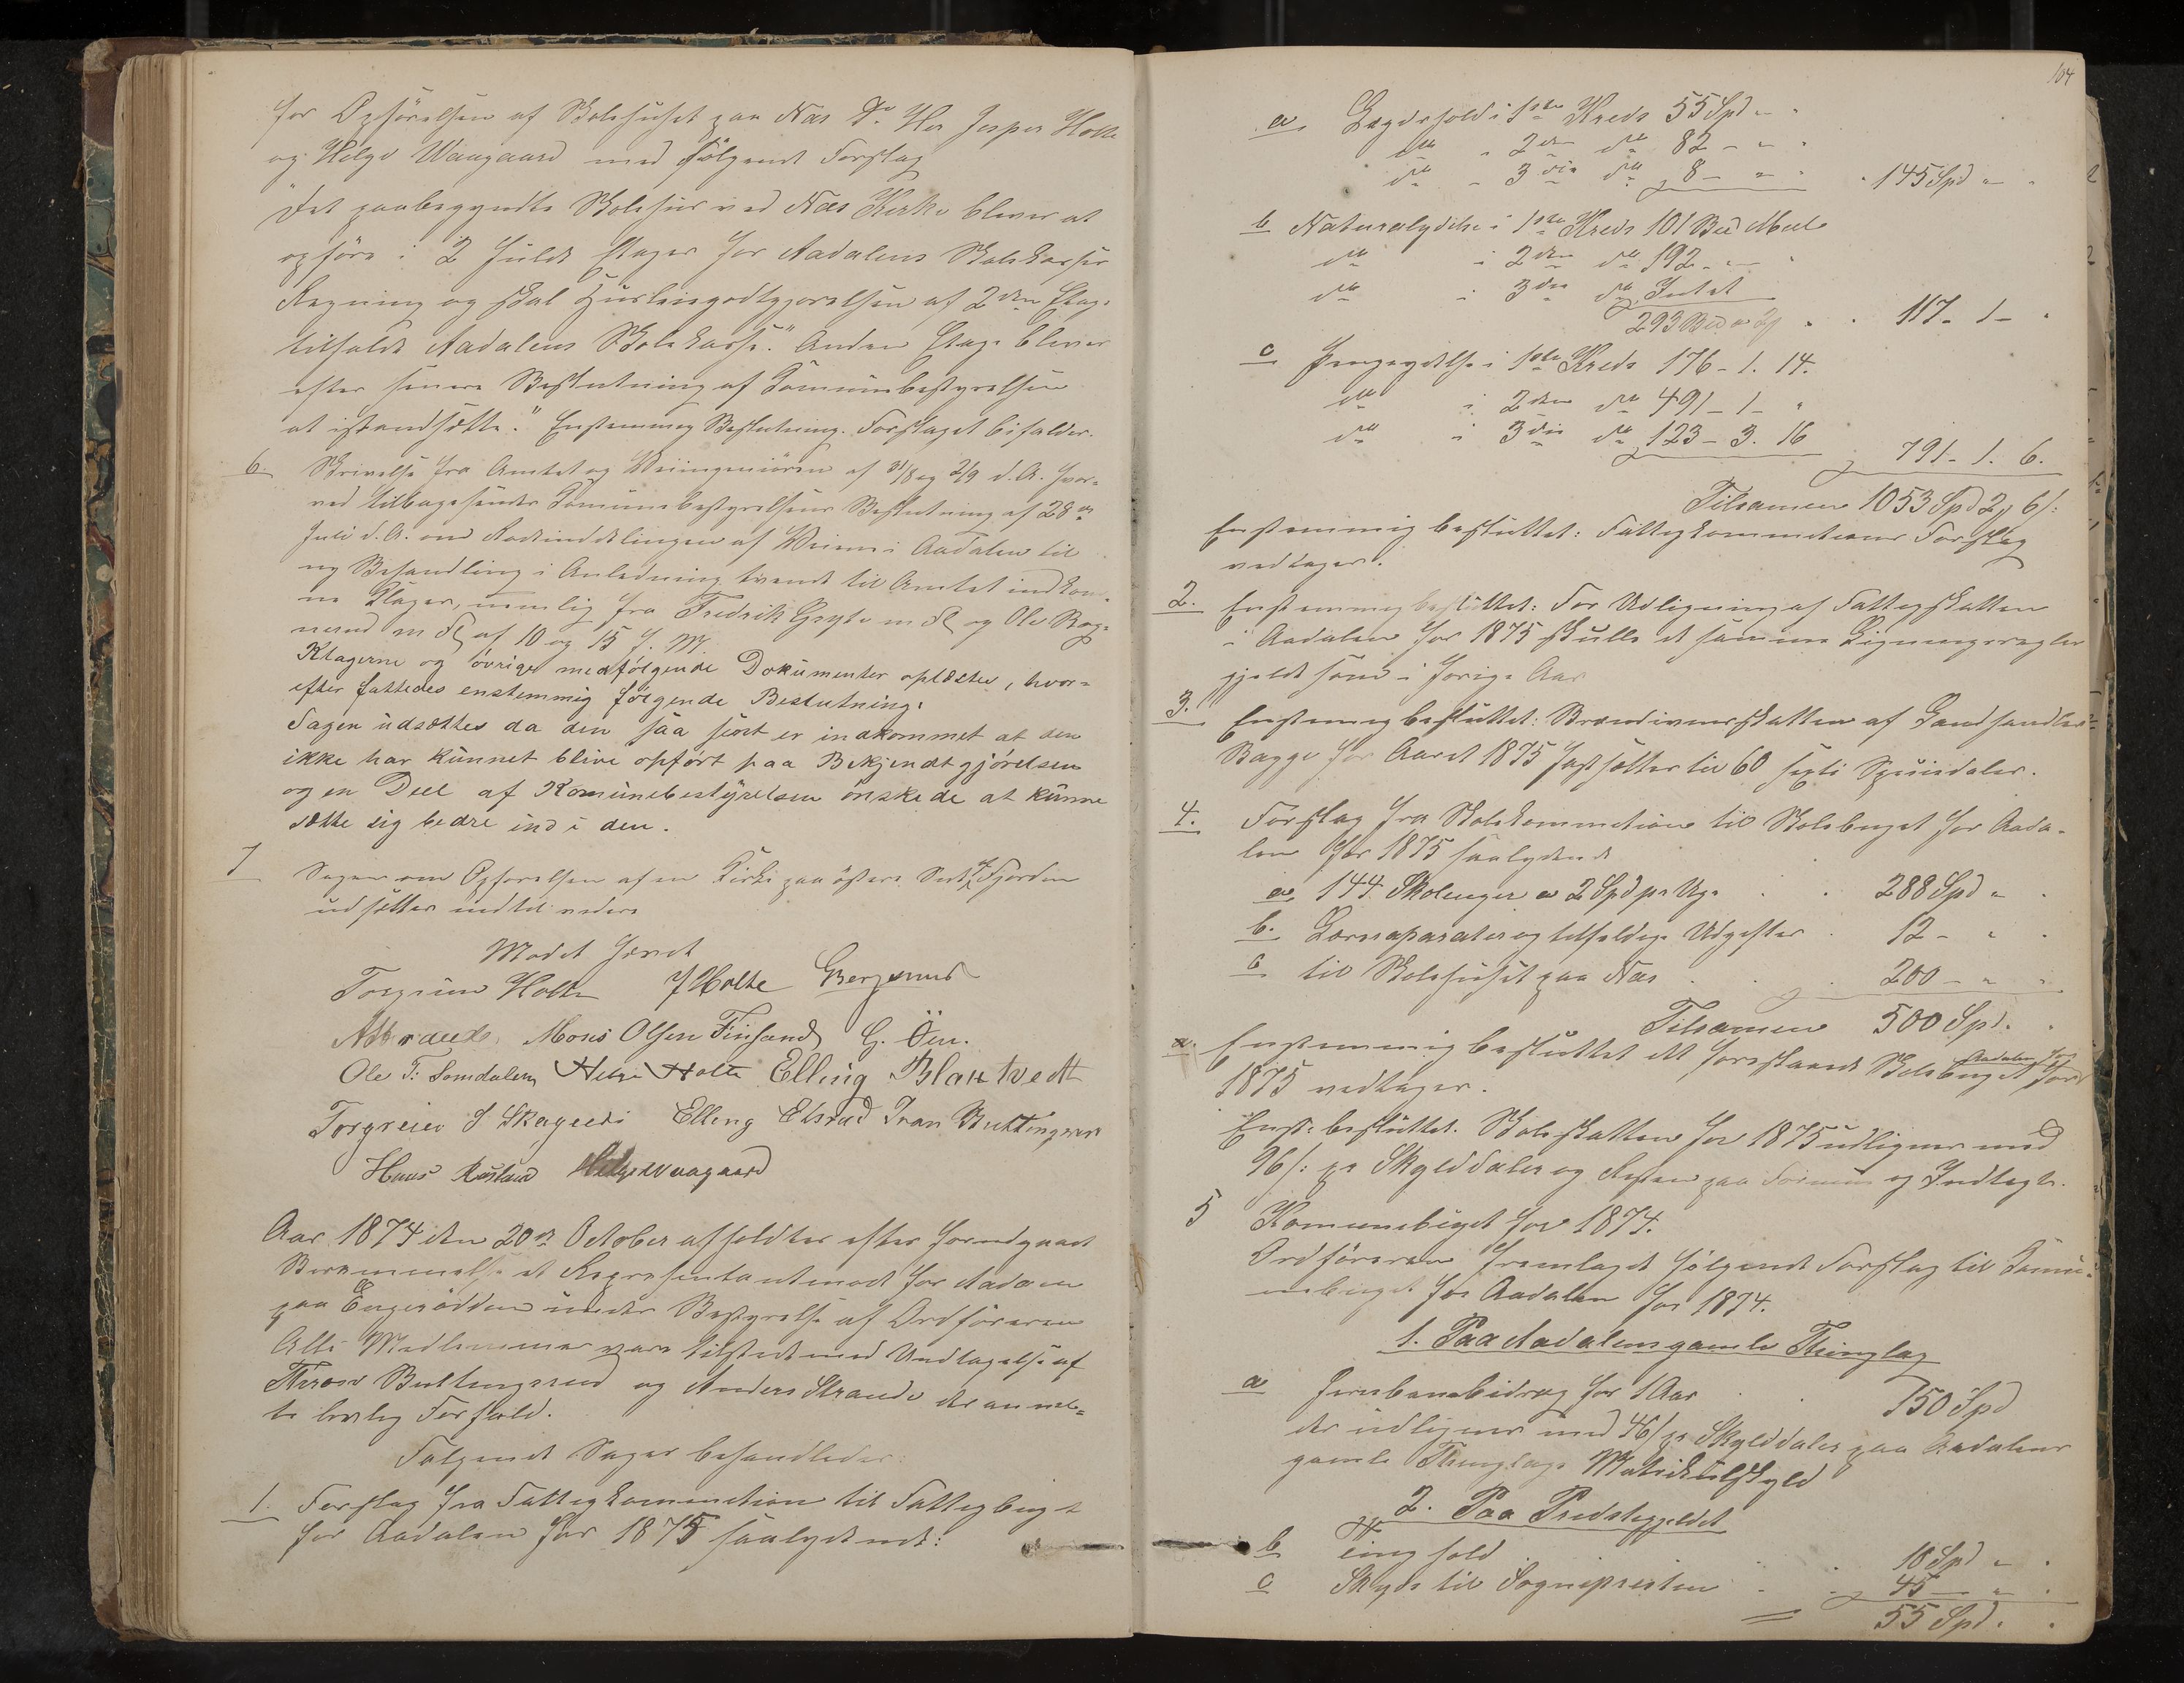 for Opførelsen af Skolehuset paa Næs
og Helge Waagaard med følgende Forslag
"Det paabegyndte Skolehus ved Næs Kirke bliver at
opføre i 2 fulde Etager for Aadalens Skolekasses
Regning og skal Huusleiegodtgjørelsen af 2den Etage
tilfalde Aadalens Skolekasse." Anden Etage bliver
efter senere Beslutning af Komunebestyrelsen
at istandsætte." Enstemmig Beslutning. Forslaget bifaldes.
6 Skrivelse fra Amtet og Veiingeniøren af 31/8 og 2/9 d. A. hvor-
ved tilbagesendes Komunebestyrelsens Beslutning af 28de
Juli d. A. om Rodeinddelingen af Veiene i Aadalen til
ny Behandling i Anledning tvende til Amtet indkom-
ne Klager, nemlig fra Fredrik Gryte m. fl. og Ole Bog-
nerud m fl af 10 og 15 f. M.
Klagerne og övrige medfølgende Dokumenter oplæstes, hvor-
efter fattedes enstemmig følgende Beslutning:
Sagen udsættes da den saa seent er indkommet at den
ikke har kunnet blive opført paa Bekjendtgjörelsen
og en Deel af Komunebestyrelsen önskede at kunne
sætte sig bedre ind i den.
7 Sagen om Opførelsen af en Kirke paa østre Side af Fjorden
udsættes indtil videre
Mødet hævet
Torgrim Holte J Holte G Bergsund
A Strande Mons Olsen Finsand G. Öen.
Ole T: Somdalen Helge Holte Elling Blaktvedt
Torgreier S Skagnedi Elleng Elsrud Ivan Buttingsrud
Hans Røsland Helge Waagaard
Aar 1874 den 20de October afholdtes efter foregaaet
Berammelse et Repræsentantmøde for Aadalen
paa Engerodden under Bestyrelse af Ordføreren
Alle Medlemmer vare tilstede med Undtagelse af
Thron Buttingsrud og Anders Strande der anmeld=
te lovlig Forfald.
Følgende Sager behandledes:
1. Forslag fra Fattigkommissionen til Fattigbuget
for Aadalen for 1875 saalydende:
104
a Lægdshold i 1ste Kreds 55 Spd " "
do " 2den do 82 - " "
do " 3die do 8 - " " 145 Spd " "
b Naturalydelse i 1ste Kreds 101 Bed Meel
do i 2den do 192 - " - "
do i 3die do Intet
293 117 - 1 - "
c Pengeydelse i 1ste Kreds 176 - 1. 14.
do i 2den do 491 - 1 - "
do i 3die do 123 - 3. 16 791 - 1. 6.
Tilsamen 1053 Spd 2 6 s:
Enstemmig besluttet: Fattigkommissionens Forslag
vedtages.
2. Enstemmig besluttet: For Udligning af Fattigskatten
i Aadalen for 1875 skulle de samme Ligningsregler
gjelde som i forrige Aar
3. Enstemmig besluttet: Brændeviinsskatten af Landhandler
Bagge for Aaret 1875 fastsættes til 60 sexti Speciedaler.
4. Forslag fra Skolekommissionen til Skolebuget for Aada-
len for 1875 saalydende
a 144 Skoleuger a 2 Spd pr Uge 288 Spd " "
b. Læreapparater og tilfældige Udgifter 12 - " "
c til Skolehuset paa Næs 200 - " "
Tilsamen 500 Spd. "
a. Enstemmig besluttet det forestaaende Skolebuget for Aadalen for
1875 vedtages.
Enst. besluttet. Skoleskatten for 1875 udlignes med
96 s: pr Skylddaler og Resten paa Formue og Indtægt.
5 Komunebuget for 1874.
Ordføreren fremlagde følgende Forslag til Komu-
nebuget for Aadalen for 1874.
1. Paa Aadalens gamle Thinglag
a Jernbanebidrag for 1 Aar 750 Spd
der udlignes med 46 s pr Skylddaler paa Aadalens
gamle Thinglags Matrikulskyld
2. Paa Præstegjeldet
b Tinghold 10 Spd " "
c Skyds til Sognepræsten 45 - " "
55 Spd. "